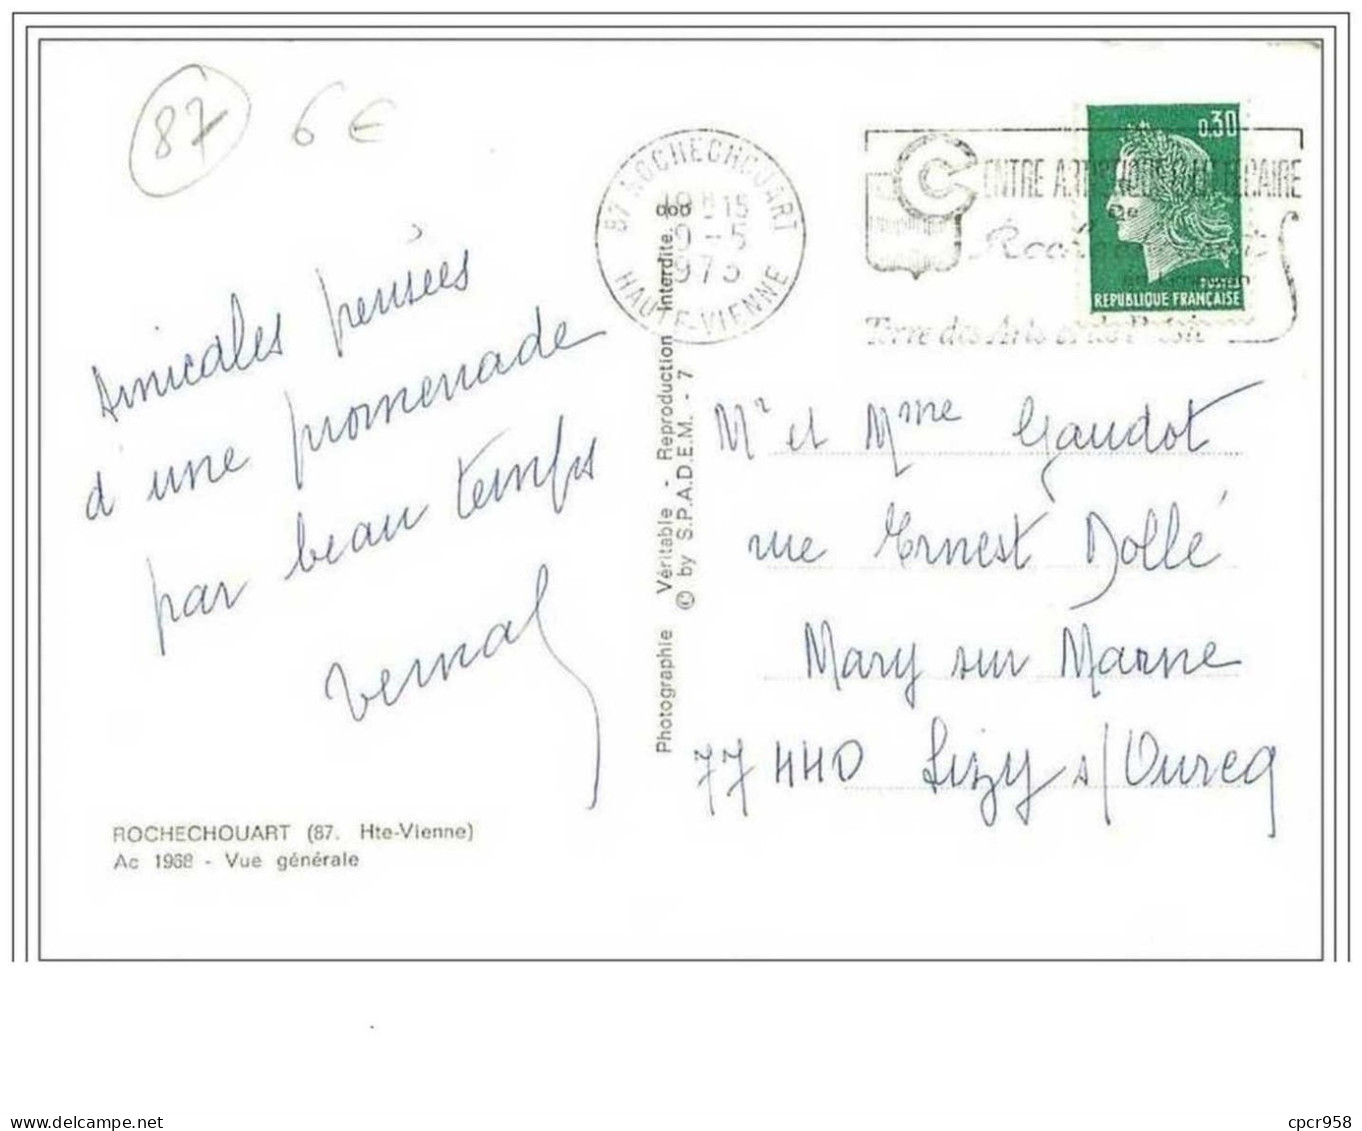 87 6€
87 ROCHECHOUART
18H15
-5
HAUTE-VIENNE
CENTRE ARTISTIQUE & LITTERAIRE
De
Terre des Arts
0,30
POSTES
REPUBLIQUE FRANÇAISE
Amicales pensées
d'une promenade
par beau temps
Vernal
Photographie Véritable - Reproduction Interdite.
© by S.P.A.D.E.M. - 7
Mr et Mme Gaudot
rue Ernest Dollé
Mary sur Marne
77440 Lizy s/Ourcq
ROCHECHOUART (87. Hte-Vienne)
Ac 1968 - Vue générale
cpcr958